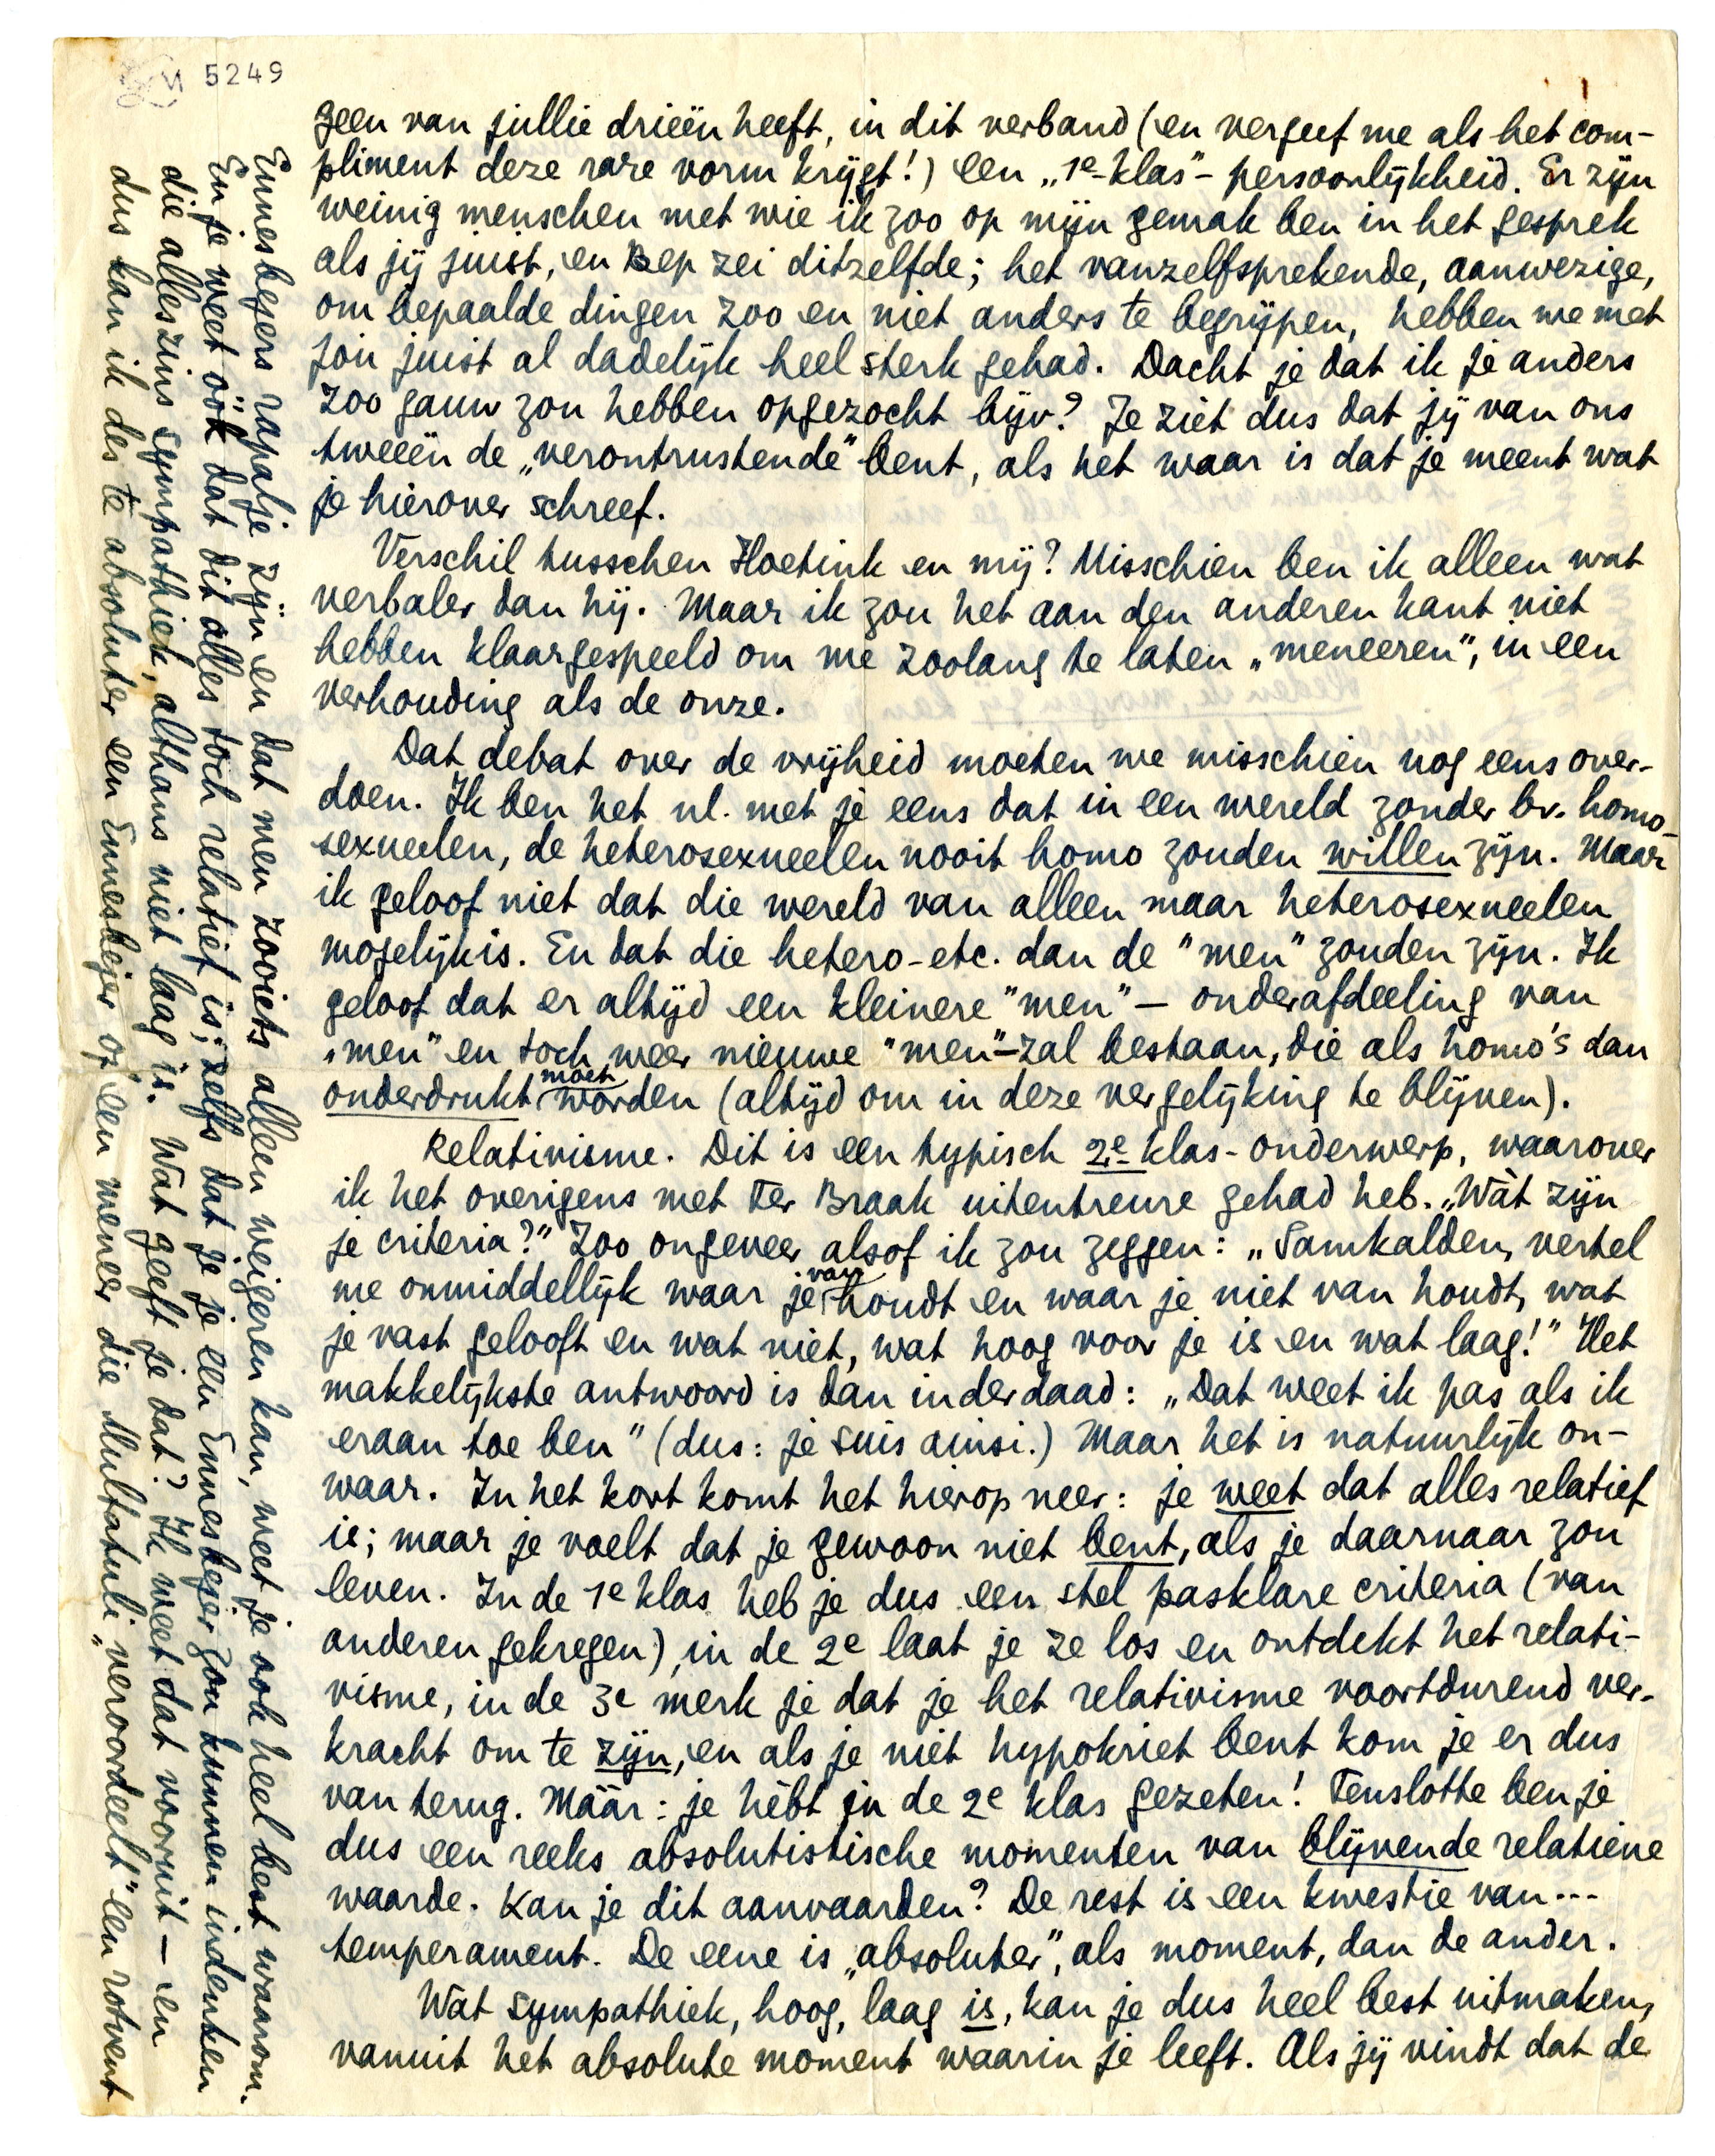 M 5249
geen van jullie drieën heeft, in dit verband (en vergeef me als het com-
pliment deze rare vorm krijgt!) een „1e-klas"- persoonlijkheid. Er zijn
weinig menschen met wie ik zoo op mijn gemak ben in het gesprek
als jij juist, en Bep zei ditzelfde; het vanzelfsprekende, aanwezige,
om bepaalde dingen zoo en niet anders te begrijpen, hebben we met
jou juist al dadelijk heel sterk gehad. Dacht je dat ik je anders
zoo gauw zou hebben opgezocht bijv? Je ziet dus dat jij van ons
tweeën de „verontrustende" bent, als het waar is dat je meent wat
je hierover schreef.
Verschil tusschen Hoetink en mij? Misschien ben ik alleen wat
verbaler dan hij. Maar ik zou het aan den anderen kant niet
hebben klaargespeeld om me zoolang te laten „meneeren", in een
verhouding als de onze.
Dat debat over de vrijheid moeten we misschien nog eens over-
doen. Ik ben het nl. met je eens dat in een wereld zonder bv. homo-
sexueelen, de heterosexueelen nooit homo zouden willen zijn. Maar
ik geloof niet dat die wereld van alleen maar heterosexueelen
mogelijk is. En dat die hetero-etc. dan de "men" zouden zijn. Ik
geloof dat er altijd een kleinere "men" - onderafdeeling van
„men" en toch weer nieuwe "men"-zal bestaan, die als homo's dan
onderdrukt moet worden (altijd om in deze vergelijking te blijven).
Relativisme. Dit is een typisch 2e klas-onderwerp, waarover
ik het overigens met Ter Braak uitentreure gehad heb. „Wàt zijn
je criteria?" Zoo ongeveer alsof ik zou zeggen: „Samkalden, vertel
me onmiddellijk waar je van houdt en waar je niet van houdt, wat
je vast gelooft en wat niet, wat hoog voor je is en wat laag!" Het
makkelijkste antwoord is dan inderdaad: „Dat weet ik pas als ik
eraan toe ben" (dus: je suis ainsi.) Maar het is natuurlijk on-
waar. In het kort komt het hierop neer: je weet dat alles relatief
is; maar je voelt dat je gewoon niet bent, als je daarnaar zou
leven. In de 1e klas heb je dus een stel pasklare criteria (van
anderen gekregen), in de 2e laat je ze los en ontdekt het relati-
visme, in de 3e merk je dat je het relativisme voortdurend ver-
kracht om te zijn, en als je niet hypokriet bent kom je er dus
van terug. Máár: je hèbt in de 2e klas gezeten! Tenslotte ben je
dus een reeks absolutistische momenten van blijvende relatieve
waarde. Kan je dit aanvaarden? De rest is een kwestie van...
temperament. De eene is „absoluter", als moment, dan de ander.
Wat sympathiek, hoog, laag is, kan je dus heel best uitmaken,
vanuit het absolute moment waarin je leeft. Als jij vindt dat de
Ennesbejers rapalje zijn en dat men zooiets alleen weigeren kan, weet je ook heel best waarom.
En je weet óók dat dit alles toch relatief is; zelfs dat je je een Ennesbejer zou kunnen indenken
die alleszins sympathiek, althans niet laag is. Wat geeft je dat? Ik weet dat vooruit - en
dus kan ik des te absoluter een Ennesbejer of een meneer die Multatuli „veroordeelt" een rotvent